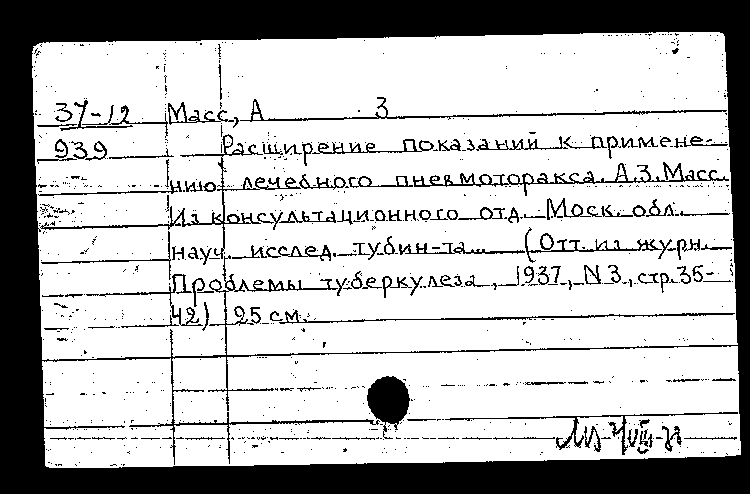 37-12 Масс, А 3
939 Расширение показаний к примене-
нию лечебного пневмоторакса. А.З.Масс.
Из консультационного отд. Моск. обл.
науч. исслед. тубин-та... (Отт. из журн.
Проблемы туберкулеза, 1937, N3, стр.35-
42) 25 см.